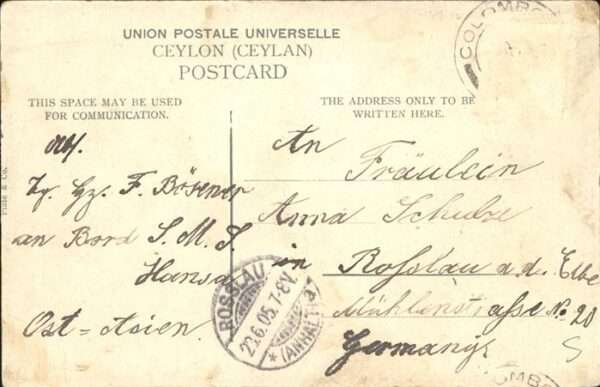 UNION POSTALE UNIVERSELLE
CEYLON (CEYLAN)
POSTCARD
COLOMBO
THIS SPACE MAY BE USED
FOR COMMUNICATION.
THE ADDRESS ONLY TO BE
WRITTEN HERE.
F. Bösener
an Bord S. M. S.
Hansa
Ost=Asien.
An
Fräulein
Anna Schulze
in Rosslau a. d. Elbe
Mühlenstrasse No. 20
Germany
ROSSLAU
23.6.05.7-8V.
* (ANHALT)